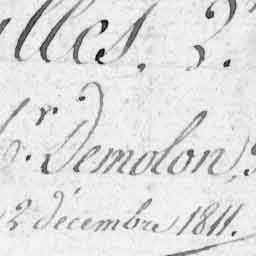 lles. 3.
br. Demolon,
2 décembre 1811.